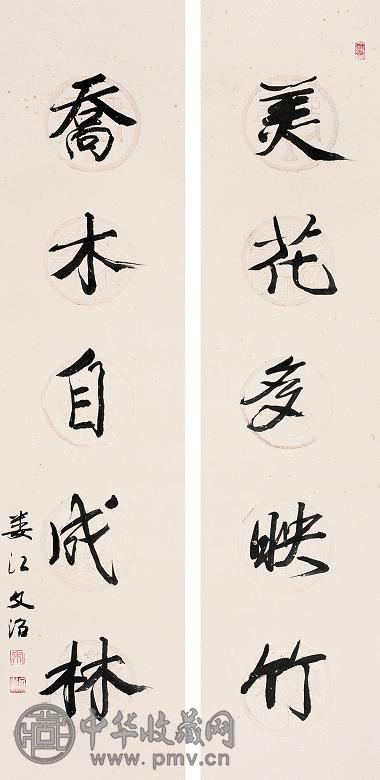 美花多映竹
喬木自成林
娄江文治
中华收藏网
www.pmv.cn